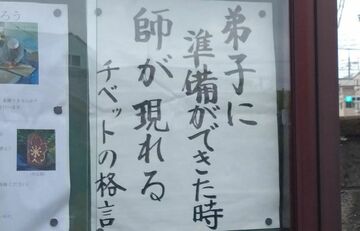 弟子に
準備ができた時
師が現れる
チベットの格言